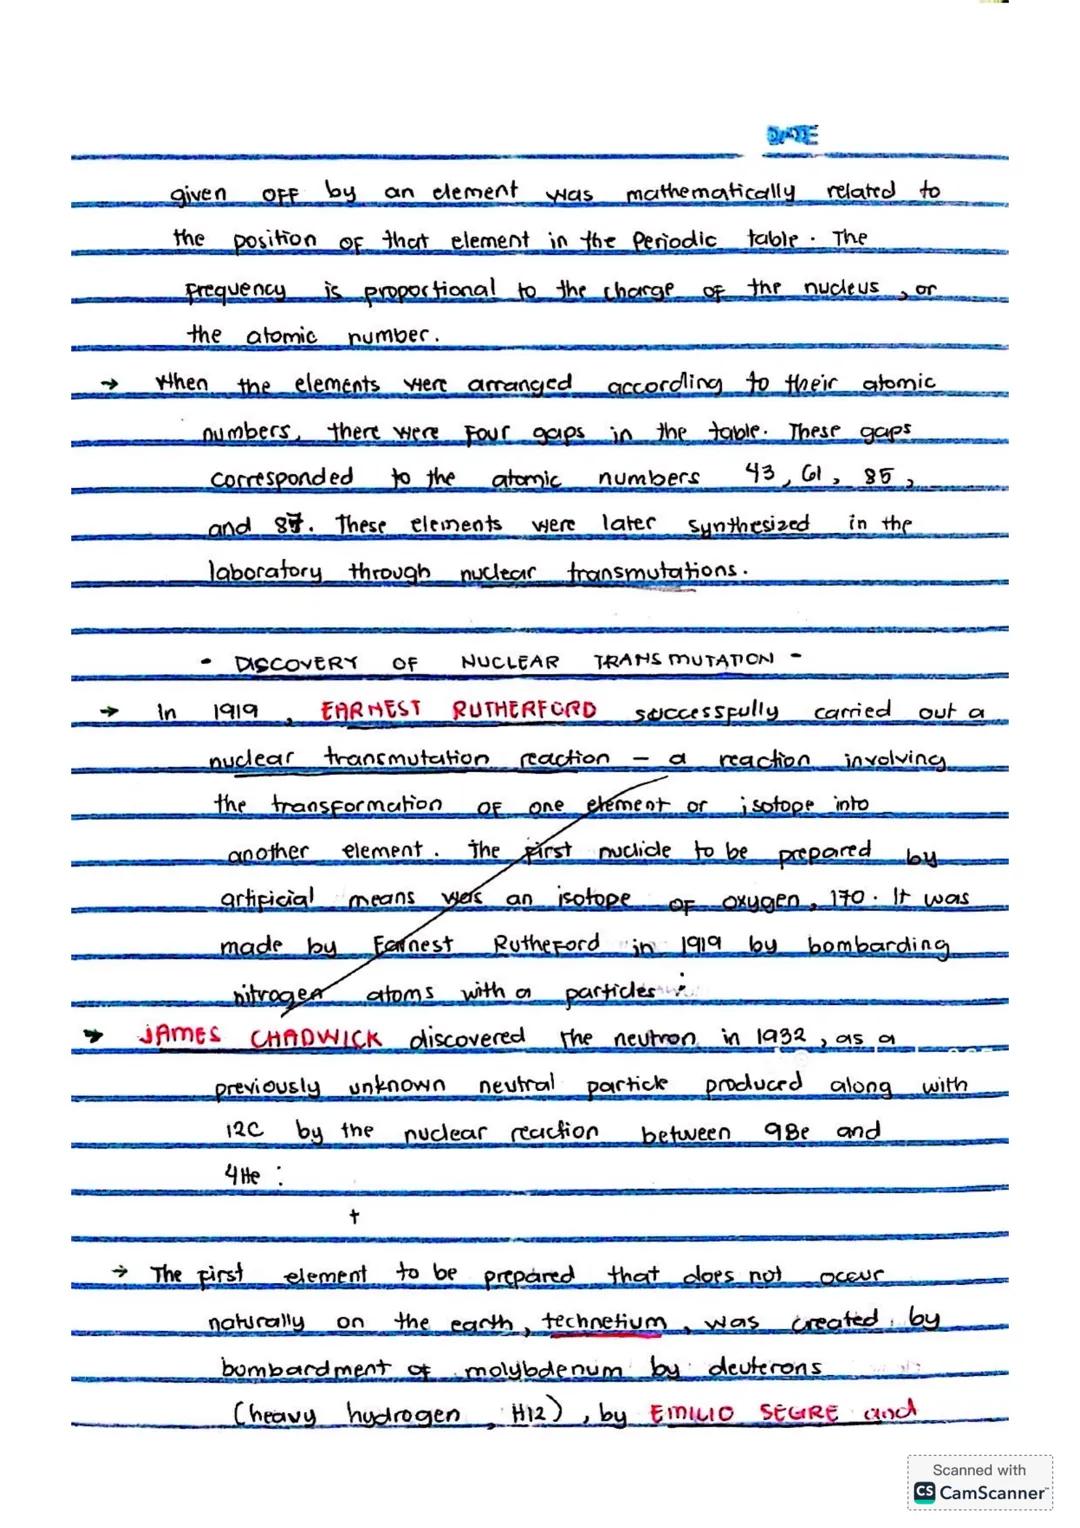 DATE
given off by an element was mathematically related to
the position of that element in the Periodic table. The
frequency is proportional to the charge of the nucleus, or
the atomic number.
→ When the elements were arranged according to their atomic
numbers, there were four gaps in the table. These gaps
corresponded to the atomic numbers 43, 61, 85,
and 87. These elements were later synthesized in the
laboratory through nuclear transmutations.
- DISCOVERY OF NUCLEAR TRANSMUTATION -
→ In 1919, EARNEST RUTHERFORD successfully carried out a
nuclear transmutation reaction - a reaction involving
the transformation of one element or isotope into
another element. The first nuclide to be prepared by
artificial means was an isotope of oxygen, 170. It was
made by Earnest Rutheford in 1919 by bombarding
nitrogen atoms with a particles :
→ JAMES CHADWICK discovered the neutron in 1932, as a
previously unknown neutral particle produced along with
12C by the nuclear reaction between 9Be and
4He :
+
→ The first element to be prepared that does not occur
naturally on the earth, technetium, was created by
bombardment of molybdenum by deuterons
(heavy hydrogen, H12), by EMILIO SEGRE and
Scanned with
CS CamScanner